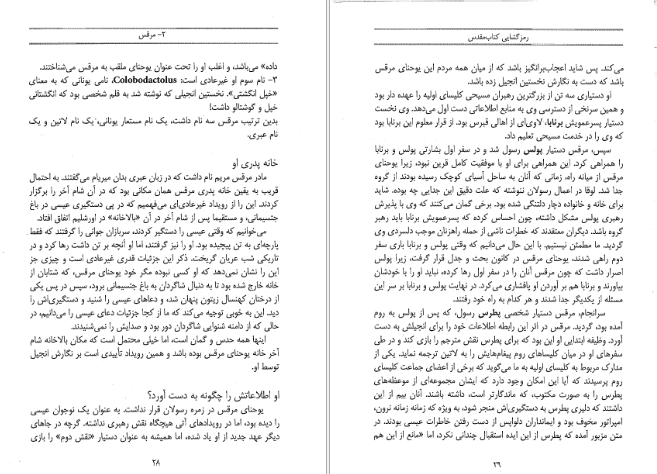 رمزگشایی کتاب‌مقدس
می‌کند. پس شاید اعجاب‌برانگیز باشد که از میان همه مردم این یوحنای مرقس
باشد که دست به نگارش نخستین انجیل زده باشد.
او دستیاری سه تن از بزرگترین رهبران مسیحی کلیسای اولیه را عهده دار بود
و همین سرنخی از دسترسی وی به منابع اطلاعاتی دست اول می‌دهد. وی نخست
دستیار پسرعمویش برنابا، لاوی‌ای از اهالی قبرس بود. از قرار معلوم این برنابا بود
که وی را در خدمت مسیحی تعلیم داد.
سپس، مرقس دستیار پولس رسول شد و در سفر اول بشارتی پولس و برنابا
را همراهی کرد. این همراهی برای او با موفقیت کامل قرین نبود، زیرا یوحنای
مرقس از میانه راه، زمانی که آنان به ساحل آسیای کوچک رسیده بودند از گروه
جدا شد. لوقا در اعمال رسولان ننوشته که علت دقیق این جدایی چه بوده. شاید
برای خانه و خانواده دچار دلتنگی شده بود. برخی گمان می‌کنند که وی با پذیرش
رهبری پولس مشکل داشته، چون احساس کرده که پسرعمویش برنابا باید رهبر
گروه باشد. دیگران معتقدند که خطرات ناشی از حمله راهزنان موجب دلسردی وی
گردید. ما مطمئن نیستیم. با این حال می‌دانیم که وقتی پولس و برنابا باری سفر
دوم راهی شدند، یوحنای مرقس در کانون بحث و جدل قرار گرفت، زیرا پولس
اصرار داشت که چون مرقس آنان را در سفر اول رها کرده، نباید او را با خودشان
بیاورند و برنابا هم بر آوردن او پافشاری می‌کرد. در نهایت پولس و برنابا بر سر این
مسئله از یکدیگر جدا شدند و هر کدام به راه خود رفتند.
سرانجام، مرقس دستیار شخصی پطرس رسول، که پس از پولس به روم
آمده بود، گردید. مرقس در اثر این رابطه اطلاعات خود را برای انجیلش به دست
آورد. وظیفه ابتدایی او این بود که برای پطرس نقش مترجم را بازی کند و در طی
سفرهای او در میان کلیساهای روم پیغام‌هایش را به لاتین ترجمه نماید. یکی از
مدارک مربوط به کلیسای اولیه به ما می‌گوید که برخی از اعضای جماعت کلیسای
روم پرسیدند که آیا این امکان وجود دارد که ایشان مجموعه‌ای از موعظه‌های
پطرس را به صورت مکتوب، که ماندگارتر است، داشته باشند. آنان بیم از این
داشتند که دلیری پطرس به دستگیری‌اش منجر شود، به ویژه که زمانه زمانه نرون،
امپراتور مخوف بود و ایمانداران دلواپس از دست رفتن خاطرات عیسی بودند. در
متن مزبور آمده که پطرس از این ایده استقبال چندانی نکرد، اما «مانع از این هم
۲۶
۲- مرقس
داده» می‌باشد، و اغلب او را تحت عنوان یوحنای ملقب به مرقس می‌شناختند.
۳- نام سوم او غیرعادی است: Colobodactolus، نامی یونانی که به معنای
«خپل انگشتی». نخستین انجیلی که نوشته شد به قلم شخصی بود که انگشتانی
خپل و گوشتالو داشت!
بدین ترتیب مرقس سه نام داشت، یک نام مستعار یونانی، یک نام لاتین و یک
نام عبری.
خانه پدری او
مادر مرقس مریم نام داشت که در زبان عبری بدان میریام می‌گفتند. به احتمال
قریب به یقین خانه پدری مرقس همان مکانی بود که در آن شام آخر را برگزار
کردند. این را از رویداد غیرعادی‌ای می‌فهمیم که در پی دستگیری عیسی در باغ
جتسیمانی، و مستقیما پس از شام آخر در آن «بالاخانه» در اورشلیم اتفاق افتاد.
می‌خوانیم که وقتی عیسی را دستگیر کردند، سربازان جوانی را گرفتند که فقط
پارچه‌ای به تن پیچیده بود. او را نیز گرفتند، اما او آنچه بر تن داشت رها کرد و در
تاریکی شب عریان گریخت، ذکر این جزئیات قدری غیرعادی است و چیزی جز
این را نشان نمی‌دهد که او کسی نبوده مگر خود یوحنای مرقس، که شتابان از
خانه خارج شده بود تا به دنبال شاگردان به باغ جتسیمانی برود، سپس در پس یکی
از درختان کهنسال زیتون پنهان شد، و دعاهای عیسی را شنید و دستگیری‌اش را
دید. این به خوبی توجیه می‌کند که ما از کجا جزئیات دعای عیسی را می‌دانیم، در
حالی که از دامنه شنوایی شاگردان دور بود و صدایش را نمی‌شنیدند.
اینها همه حدس و گمان است، اما خیلی محتمل است که مکان بالاخانه شام
آخر خانه یوحنای مرقس بوده باشد و همین رویداد تأییدی است بر نگارش انجیل
توسط او.
او اطلاعاتش را چگونه به دست آورد؟
یوحنای مرقس در زمره رسولان قرار نداشت. به عنوان یک نوجوان عیسی
را دیده بود، اما در رویدادهای آنی هیچگاه نقش رهبری نداشته. گرچه در جاهای
دیگر عهد جدید از او یاد شده، اما همیشه به عنوان دستیار «نقش دوم» را بازی
۲۸